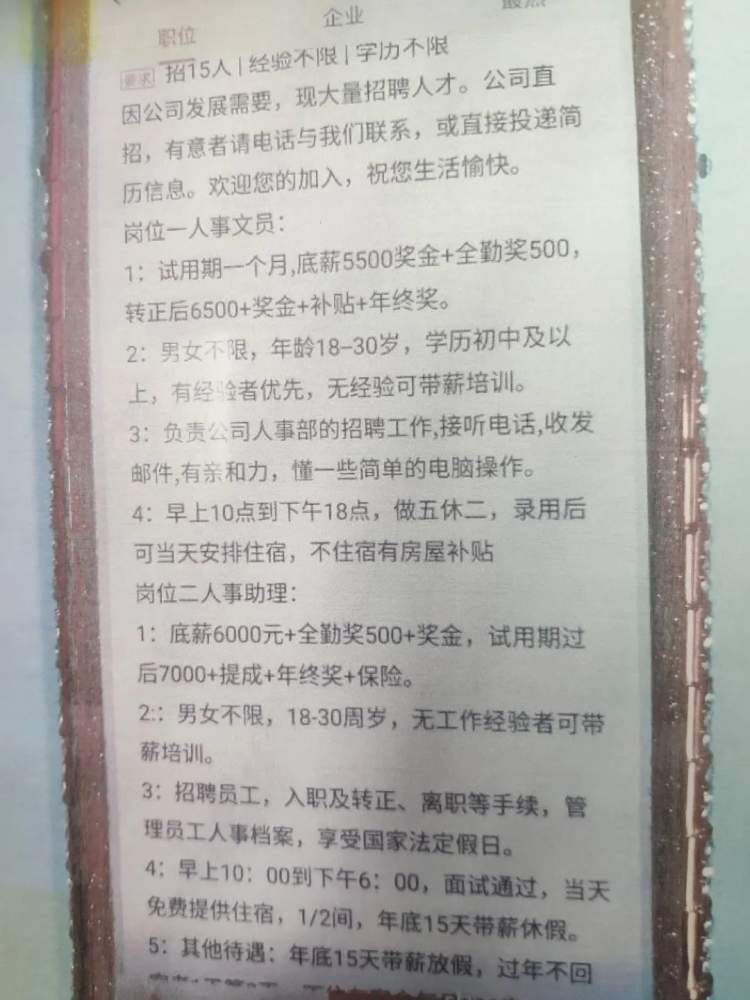 职位
企业
要求 招15人 | 经验不限 | 学历不限
因公司发展需要，现大量招聘人才。公司直
招，有意者请电话与我们联系，或直接投递简
历信息。欢迎您的加入，祝您生活愉快。
岗位一人事文员：
1：试用期一个月,底薪5500奖金+全勤奖500，
转正后6500+奖金+补贴+年终奖。
2：男女不限，年龄18–30岁，学历初中及以
上，有经验者优先，无经验可带薪培训。
3：负责公司人事部的招聘工作,接听电话,收发
邮件,有亲和力，懂一些简单的电脑操作。
4：早上10点到下午18点，做五休二，录用后
可当天安排住宿，不住宿有房屋补贴
岗位二人事助理：
1：底薪6000元+全勤奖500+奖金，试用期过
后7000+提成+年终奖+保险。
2:：男女不限，18-30周岁，无工作经验者可带
薪培训。
3：招聘员工，入职及转正、离职等手续，管
理员工人事档案，享受国家法定假日。
4：早上10：00到下午6：00，面试通过，当天
免费提供住宿，1/2间，年底15天带薪休假。
5：其他待遇：年底15天带薪放假，过年不回